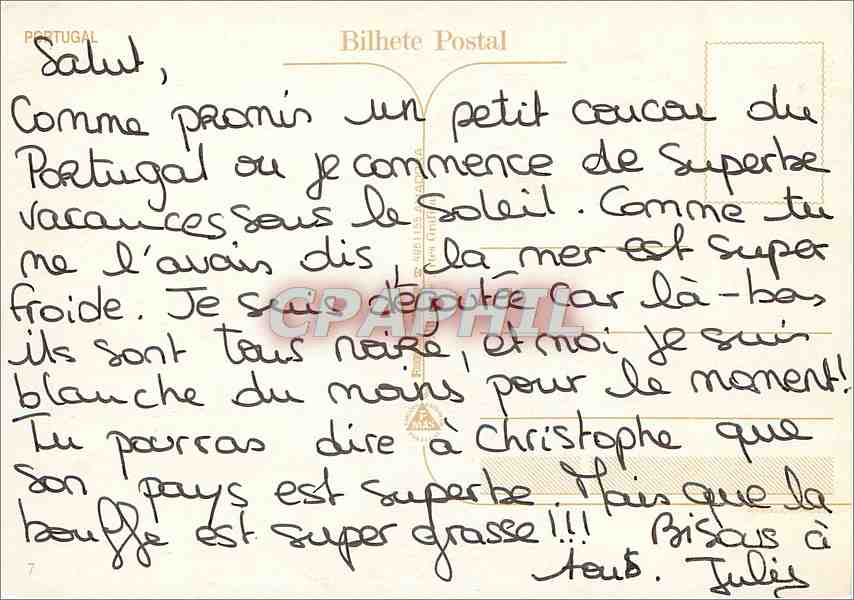 PORTUGAL
Bilhete Postal
Salut,
Comme promis un petit coucou du
Portugal ou je commence de superbe
vacances sous le soleil. Comme tu
me l'avais dis, la mer est super
froide. Je suis dégoutée car là-bas
ils sont tous noire, et moi je suis
blanche du moins pour le moment!
Tu pourras dire à Christophe que
son pays est superbe. Mais que la
bouffe est super grasse!!! Bisous à
tous. Julie
CPAPHIL
7